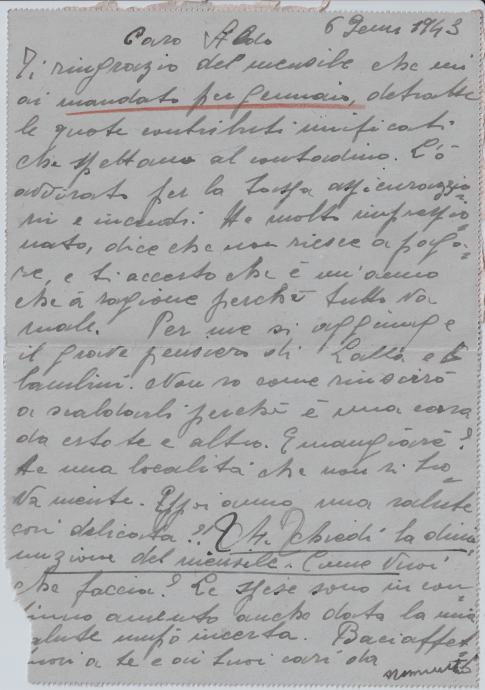 6 Genn 1943
Caro Aldo
Ti ringrazio del mensile che mi
ai mandato per gennaio, detratte
le quote contributi unificati
che spettano al contadino. L'ò
avvisato per la tassa assicurazio
ni e incendi. Ha molto impressio=
nato, dice che non riesce a paga=
re, e ti accerto che è un'anno
che à ragione perchè tutto va
male. Per me si aggiunge
il grave pensiero di e
bambini. Non so come riuscirò
a scaldarli perchè è una casa
da estate e altro. E mangiare?
una località che non si tro=
va niente. Essi anno una salute
così delicata?! chiedi la dimi
nuzione del mensile. Come vuoi
che faccia? Le spese sono in con
tinuo aumento anche dato la mia
salute un pò incerta. Baci affet
tuosi a te e ai tuoi cari da